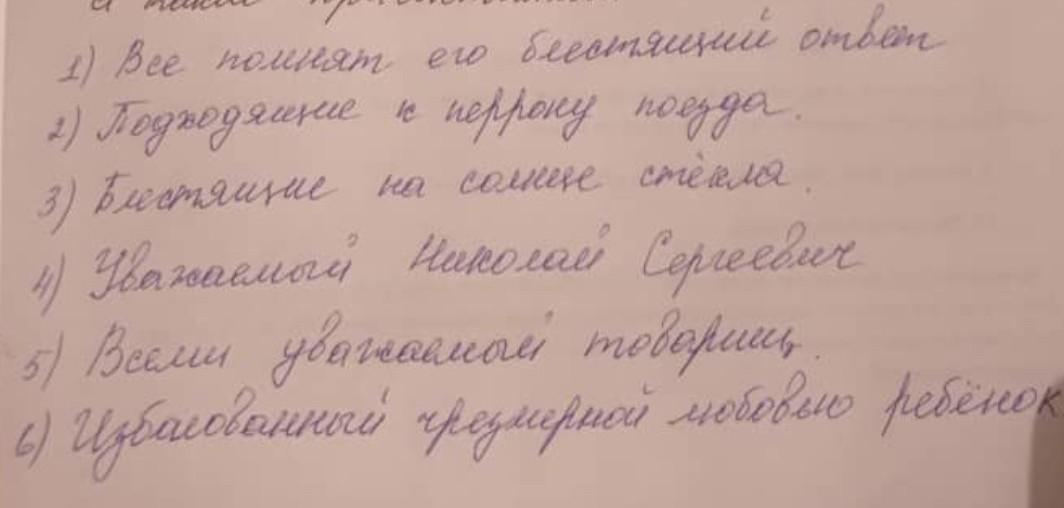 1) Все помнят его блестящий ответ
2) Подходящие к перрону поезда.
3) Блестящие на солнце стёкла.
4) Уважаемый Николай Сергеевич
5) Всеми уважаемый товарищ.
6) Избалованный чрезмерной любовью ребёнок